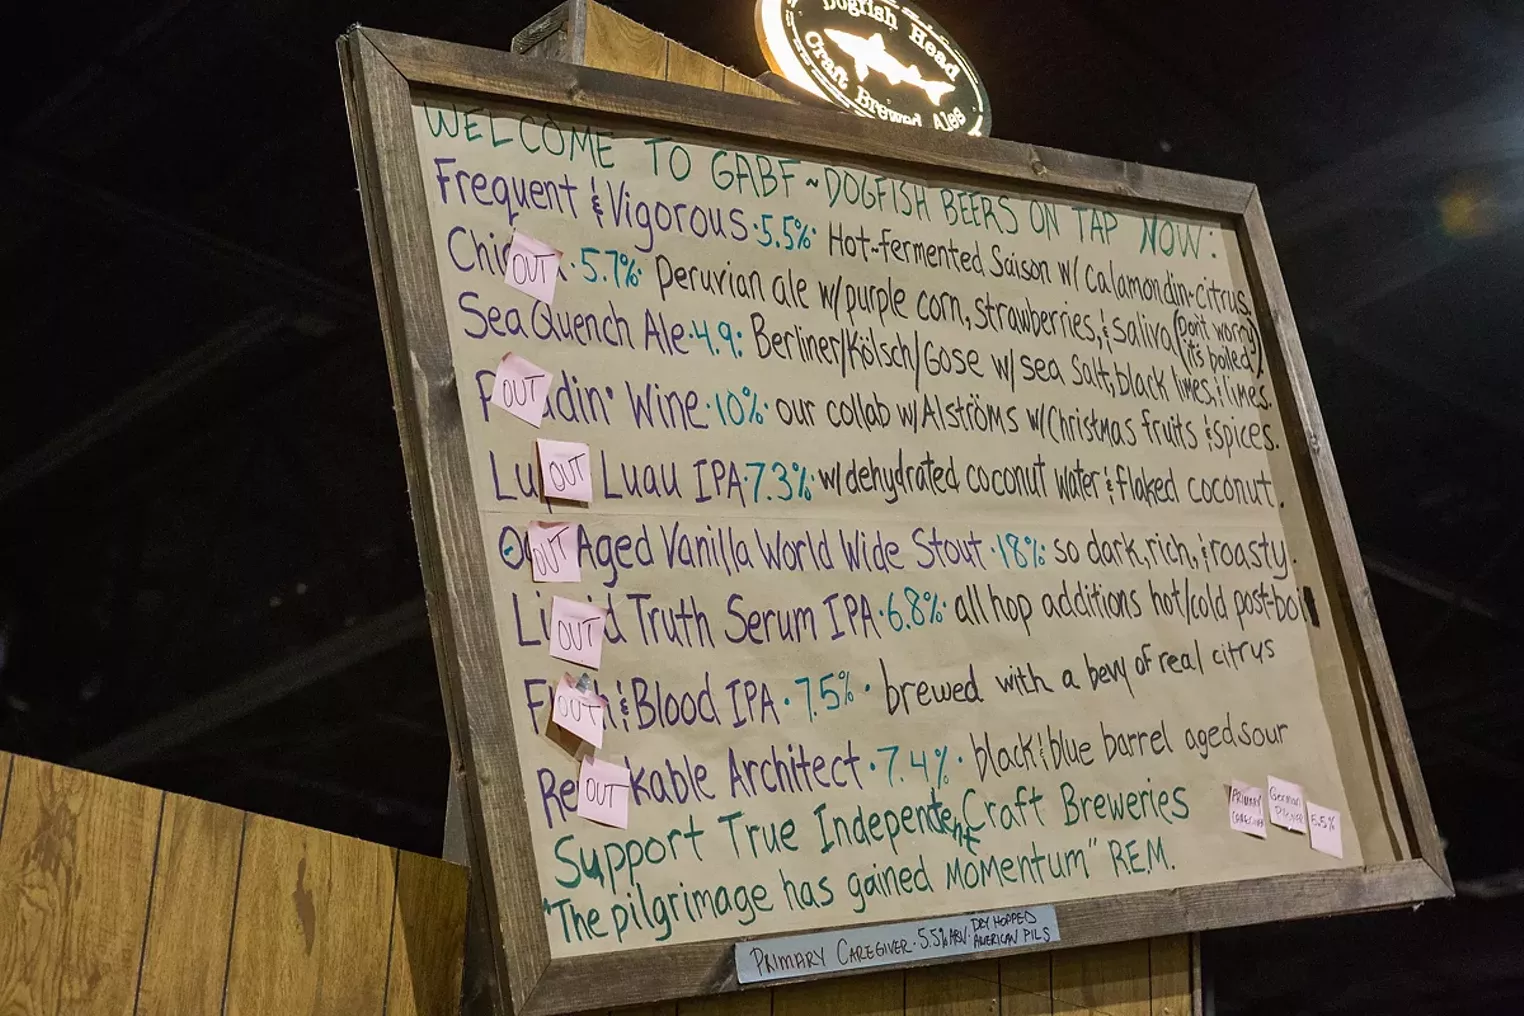 Dogfish Head
Craft Brewed Ales
WELCOME TO GABF ~ DOGFISH BEERS ON TAP NOW:
Frequent & Vigorous · 5.5% · Hot-fermented Saison w/ Calamondin-citrus.
Chi OUT · 5.7% · Peruvian ale w/ purple corn, strawberries, & saliva (Don't worry it's boiled)
SeaQuench Ale · 4.9 : Berliner/Kölsch/Gose w/ sea salt, black limes, & limes.
P OUT din' Wine · 10% · our collab w/ Alströms w/ Christmas fruits & spices.
Lu OUT Luau IPA · 7.3% · w/ dehydrated coconut water & flaked coconut.
O OUT Aged Vanilla World Wide Stout · 18% · so dark, rich, & roasty.
Li OUT d Truth Serum IPA · 6.8% · all hop additions hot/cold post-boil
Fl OUT h & Blood IPA · 7.5% · brewed with a bevy of real citrus
Re OUT kable Architect · 7.4% · black & blue barrel aged sour
Support True Independent Craft Breweries
"The pilgrimage has gained momentum" R.E.M.
PRIMARY CAREGIVER
German Pilsner
5.5%
PRIMARY CAREGIVER · 5.5% ABV · DRY HOPPED AMERICAN PILS